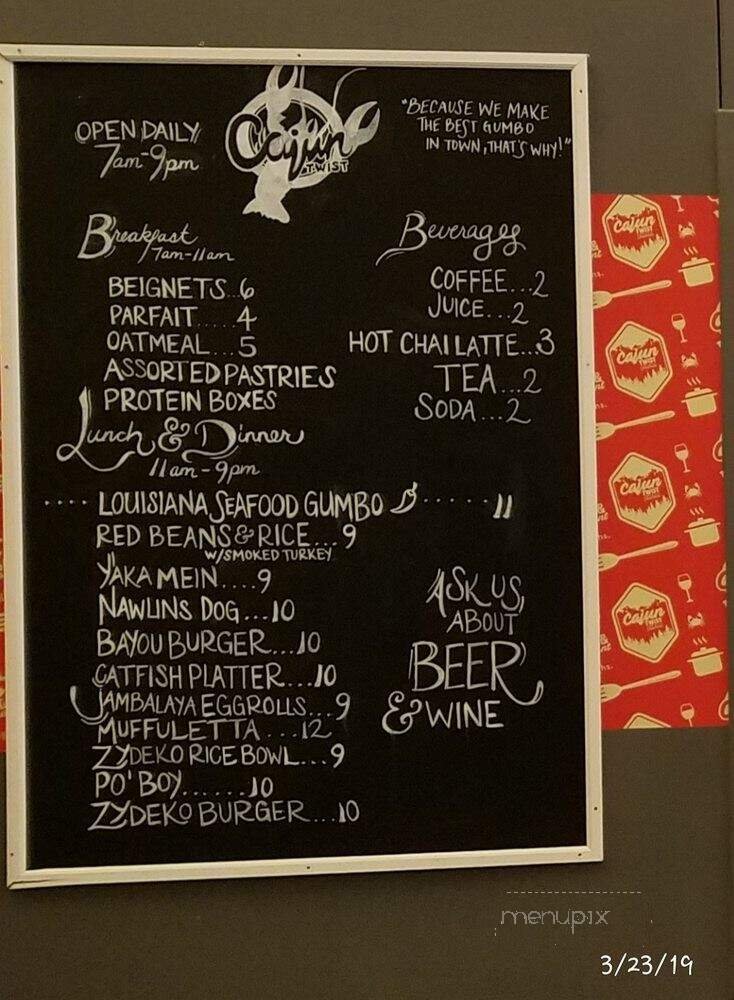 OPEN DAILY
7am-9pm
Cajun
TWIST
"BECAUSE WE MAKE
THE BEST GUMBO
IN TOWN, THAT'S WHY!"
Breakfast
7am-11am
BEIGNETS..6
PARFAIT.....4
OATMEAL...5
ASSORTED PASTRIES
PROTEIN BOXES
Beverages
COFFEE...2
JUICE...2
HOT CHAI LATTE...3
TEA...2
SODA...2
Lunch & Dinner
11am-9pm
....LOUISIANA SEAFOOD GUMBO.....11
RED BEANS & RICE...9
W/SMOKED TURKEY
YAKA MEIN....9
NAWLINS DOG...10
BAYOU BURGER...10
CATFISH PLATTER...10
JAMBALAYA EGGROLLS...9
MUFFULETTA...12
ZYDEKO RICE BOWL...9
PO' BOY......10
ZYDEKO BURGER...10
ASK US
ABOUT
BEER
& WINE
cajun
TWIST
cajun
TWIST
cajun
TWIST
cajun
TWIST
menupix
3/23/19